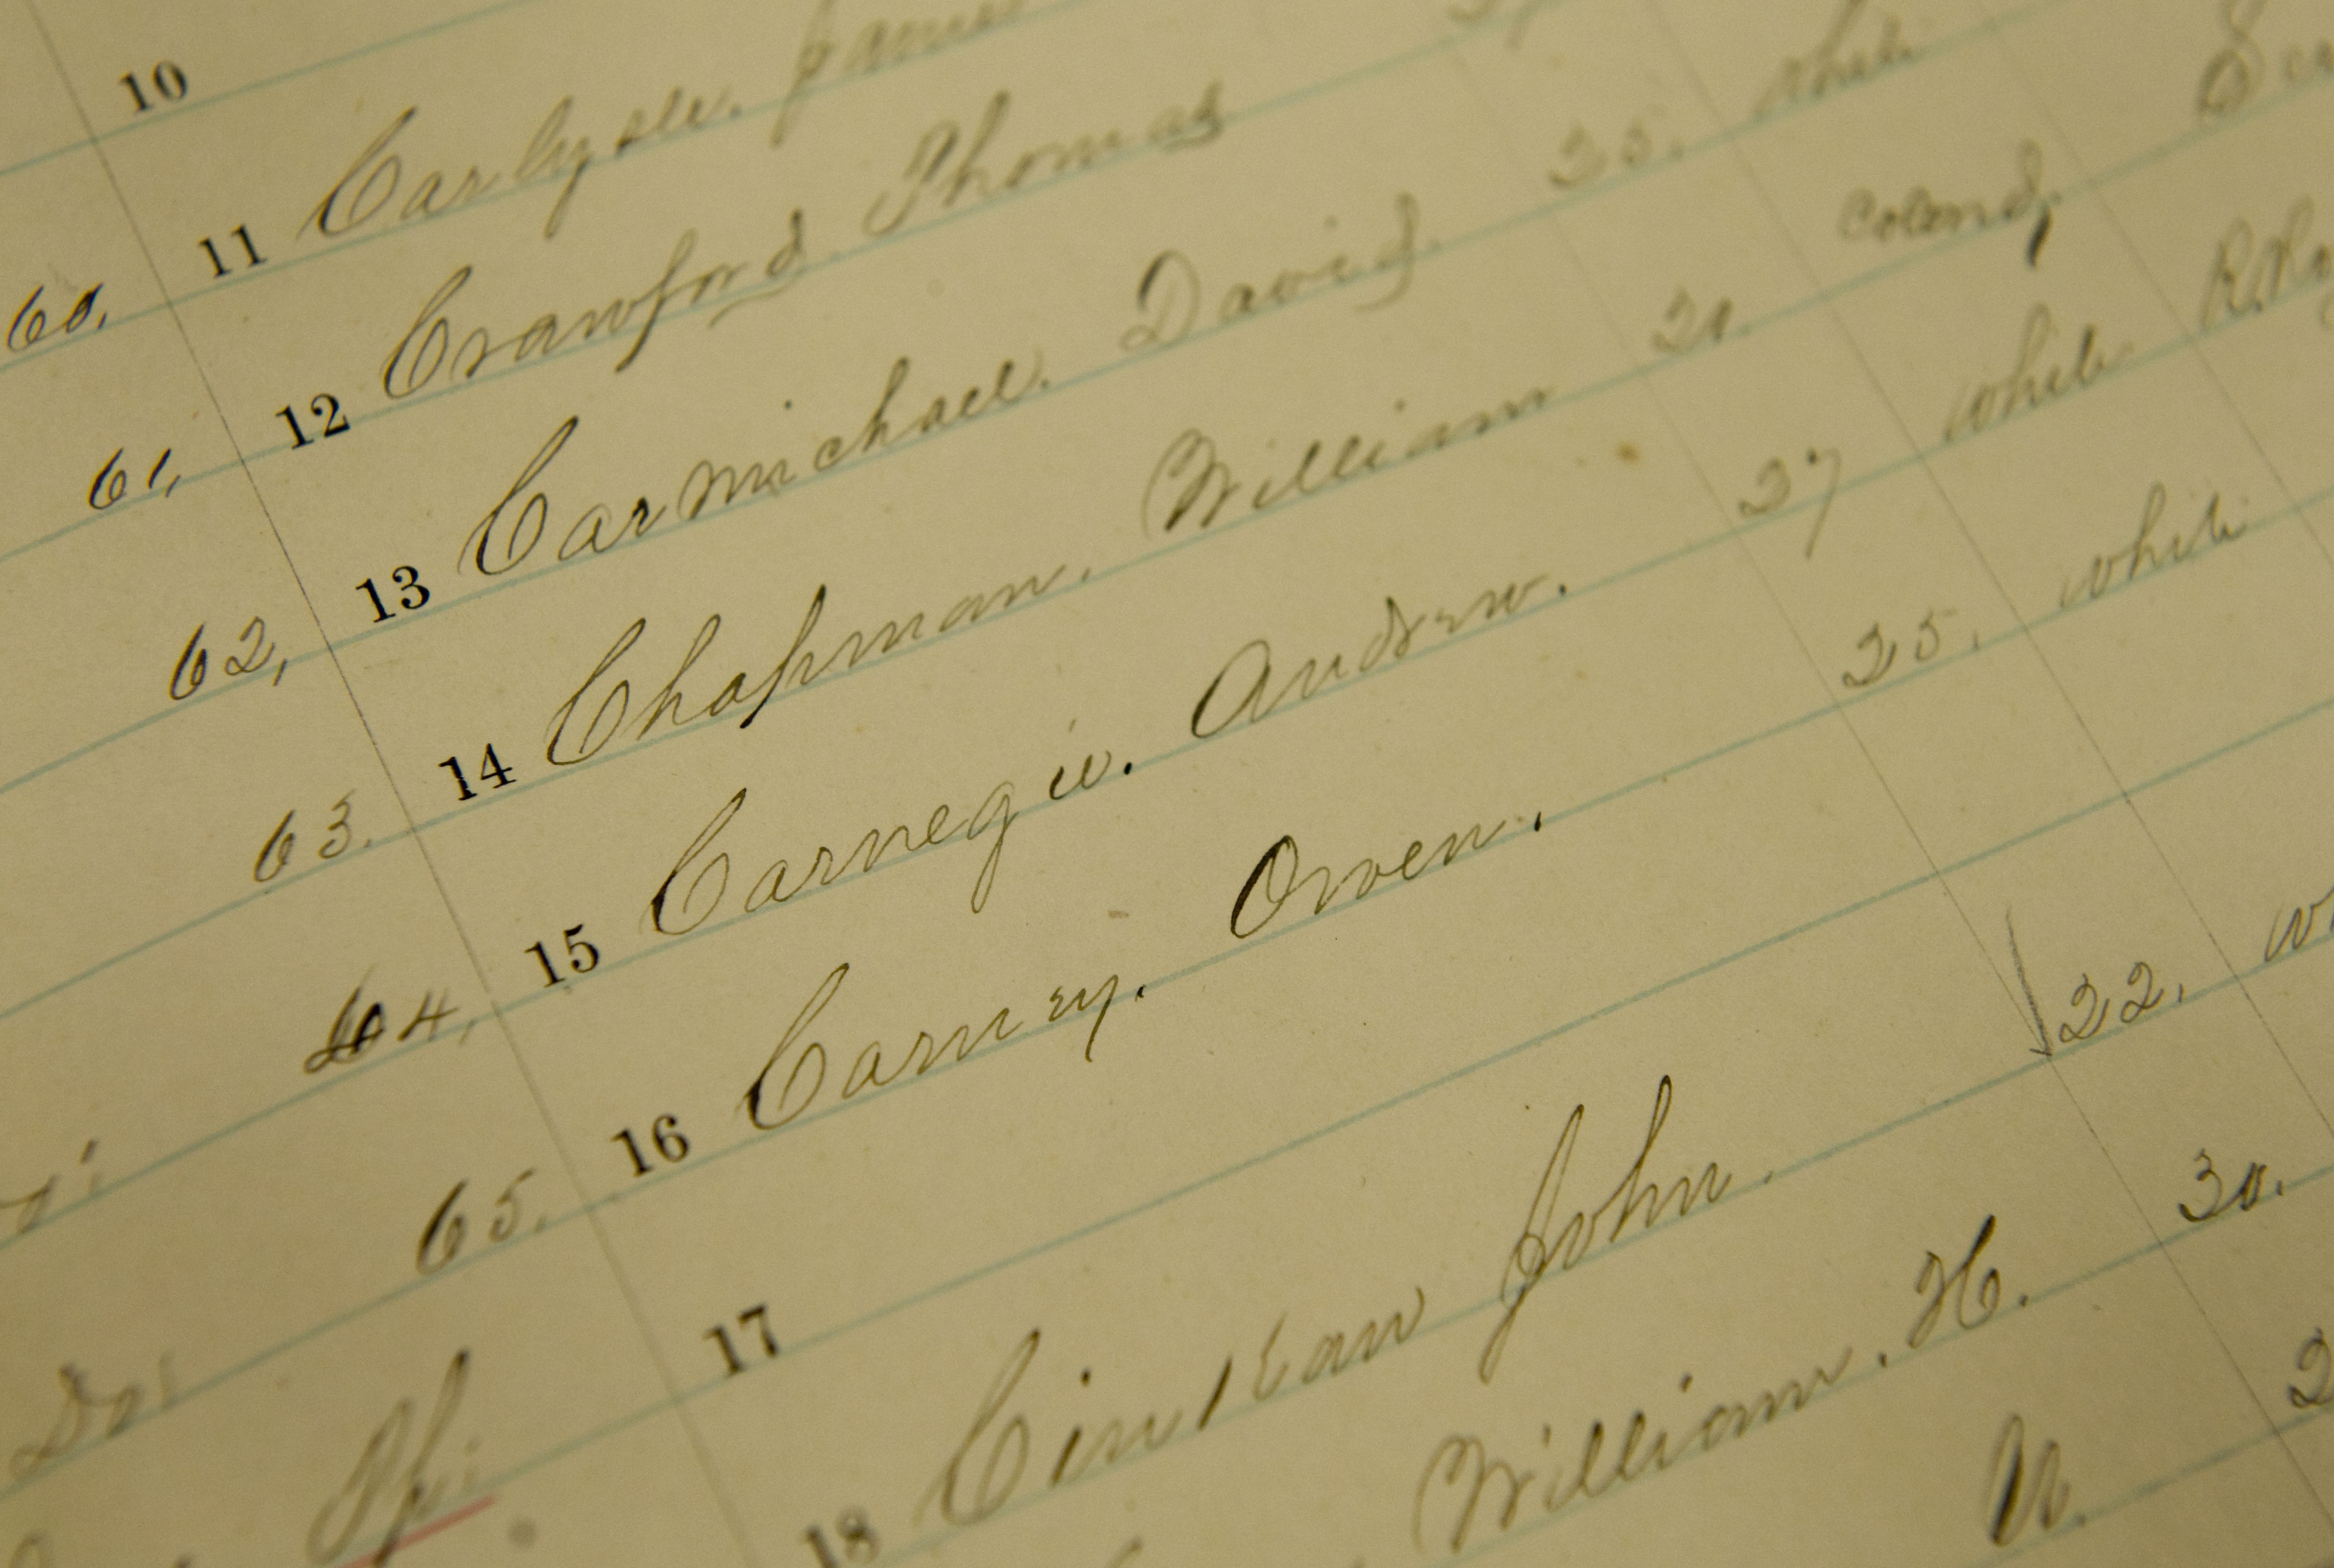 10
60, 11 Carlysle. James
61, 12 Crawford Thomas
62, 13 Carmichael. David. 25. white
63. 14 Chapman. William colored,
64, 15 Carnegie. Andrew. 27 white
65. 16 Carney. Owen. 25. white
17
18 John. 22.
William. H. 30.